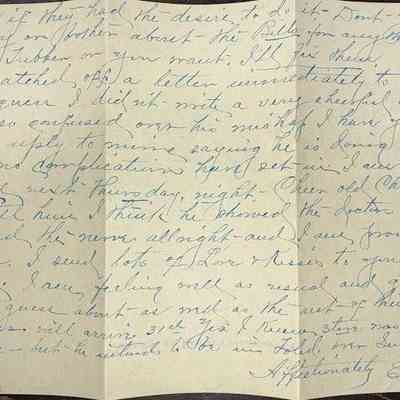 if they had the desire to do it - Don't
on bother about the Bills for any th
Rubber or you want. I'll fix them
atched off a letter immediately to
guess I didn't write a very cheerful
so confused over his mishap I have
reply to mine saying he is doing
no complications have set in I am
next Thursday night - Cheer old Ch
Tell him I think he showed the doctor
had the nerve allright - and I am prou
. I send lots of Love & Kisses to you
I am feeling well as usual and
guess about as mad as the rest of
will arrive 31st Yes I
- but he intends to be in
Affectionately E